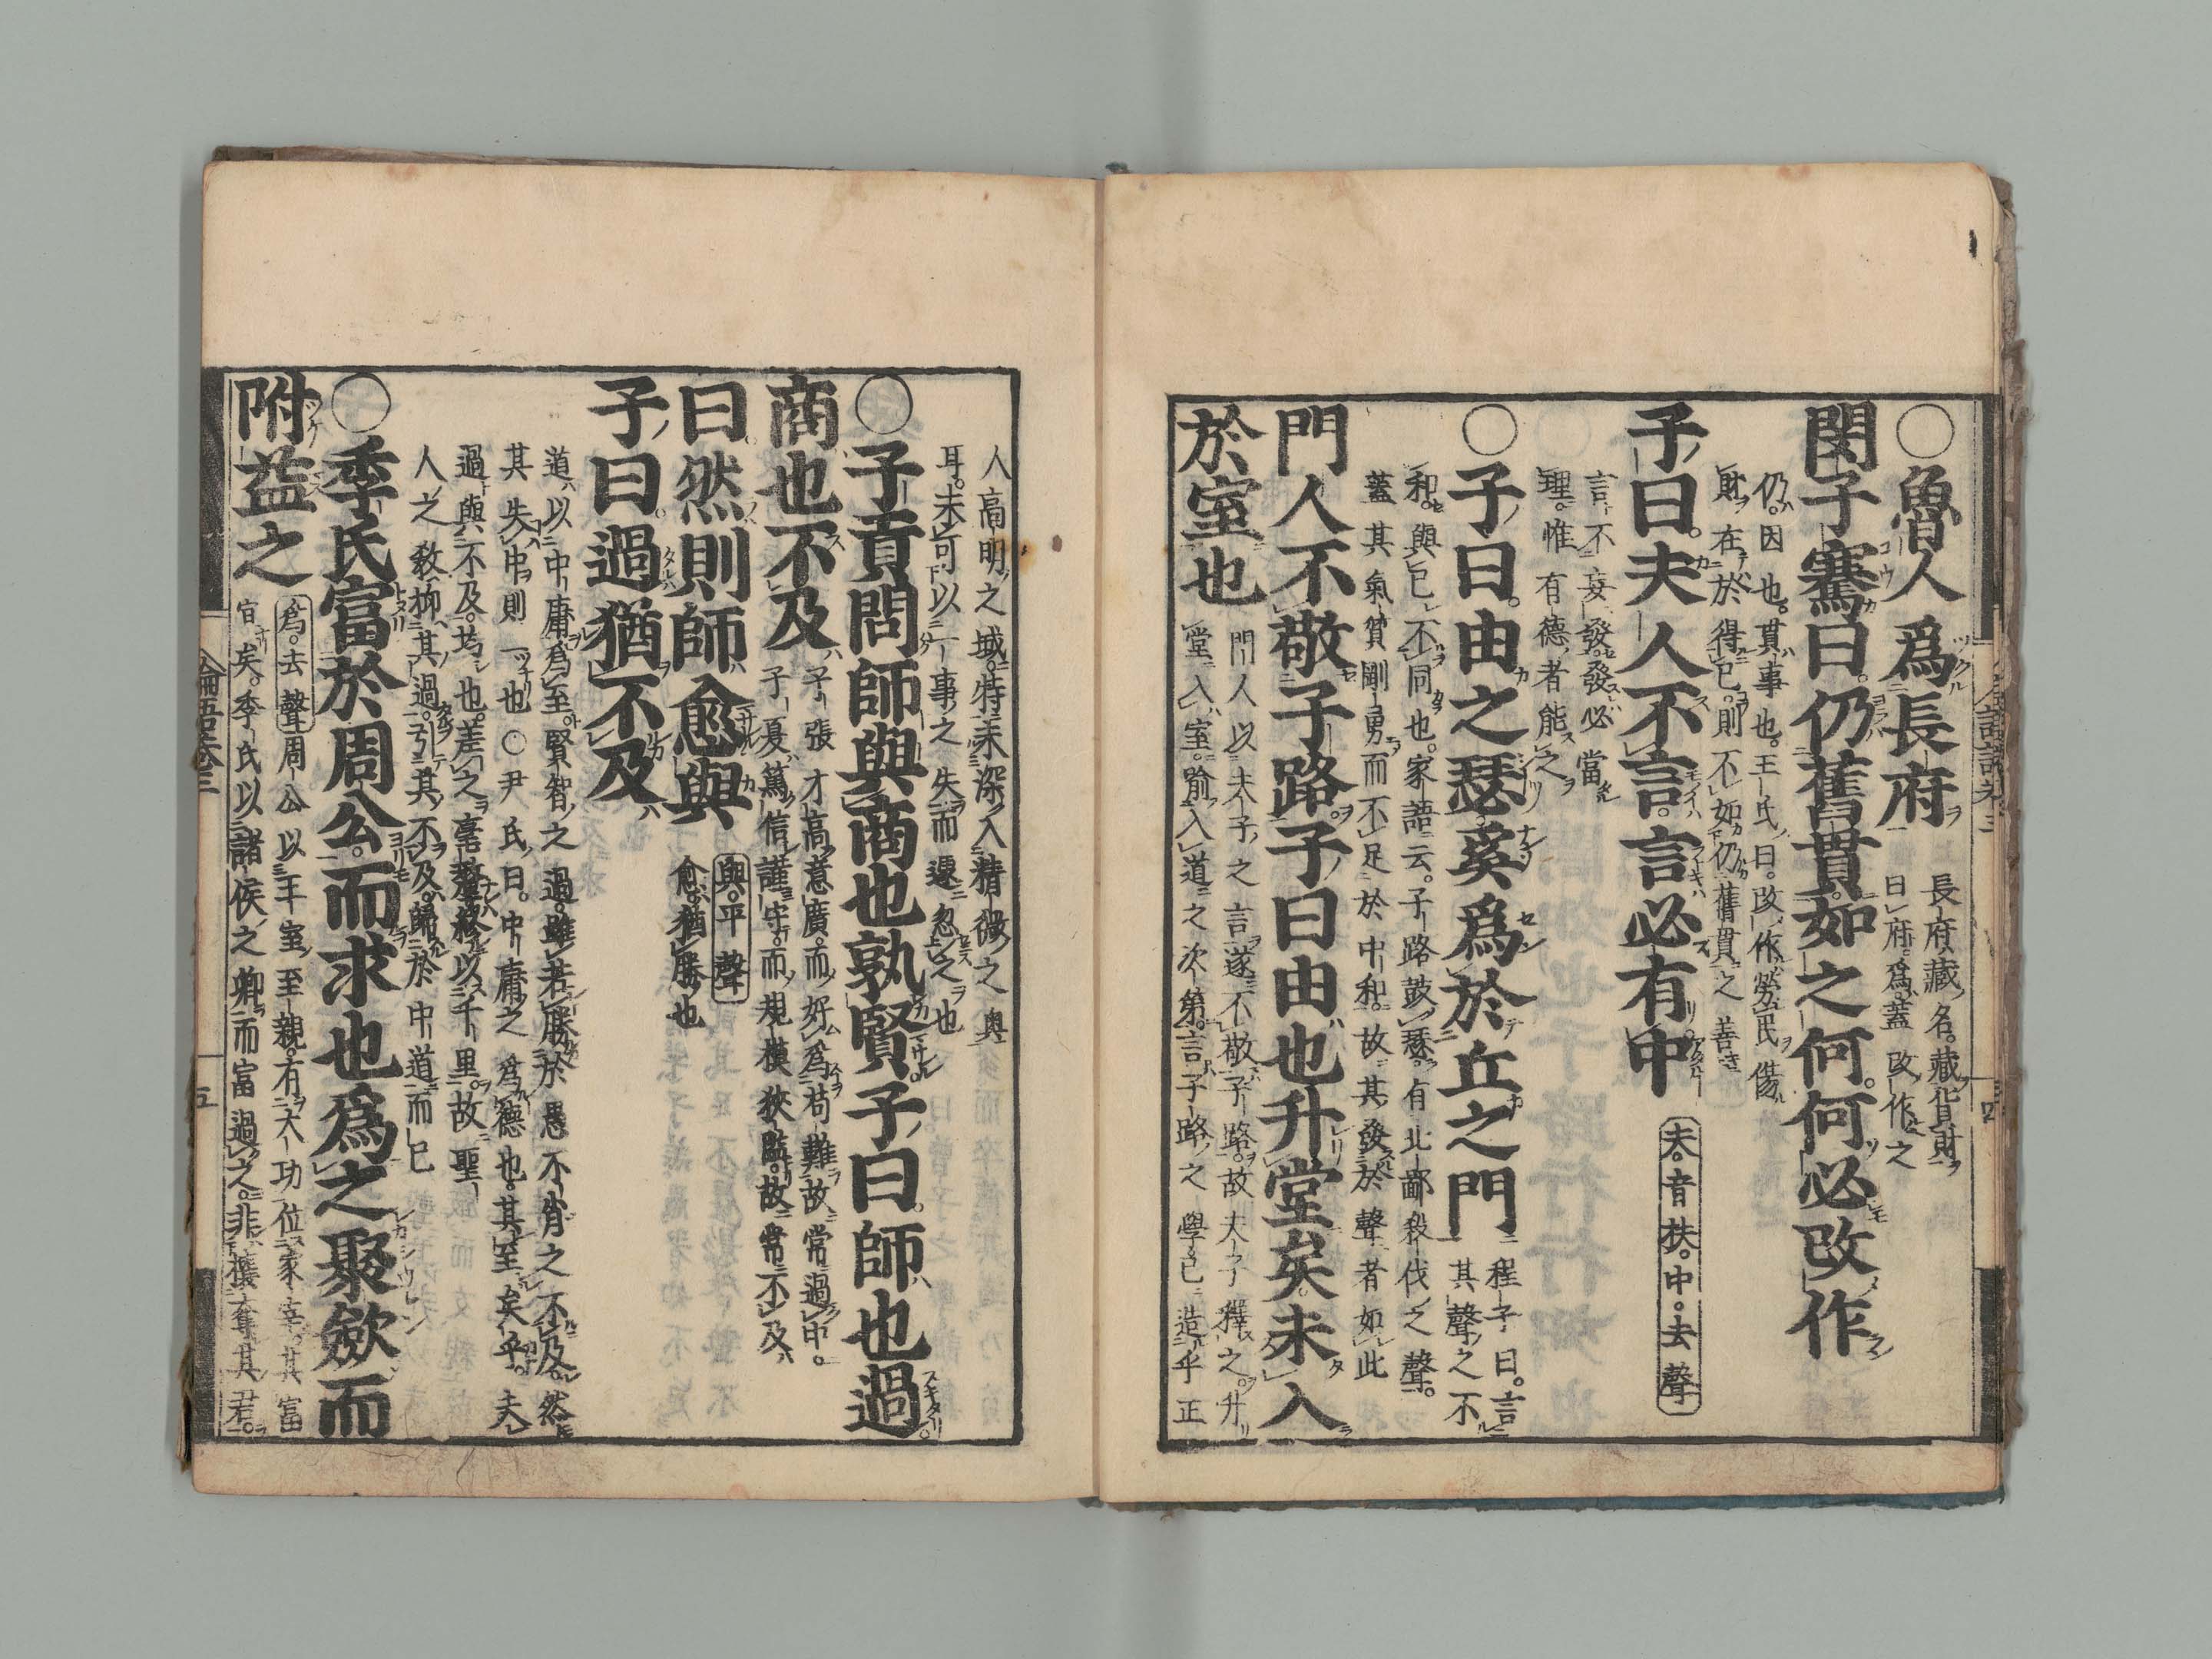 ○魯人爲長府
長府藏名。藏貨財
曰府。爲。蓋改作之
閔子騫曰。仍舊貫。如之何。何必改作
仍。因也。貫。事也。王氏曰。改作。勞民傷
財。在於得已。則不如仍舊貫之善
子曰。夫人不言。言必有中
夫。音扶。中。去聲
言不妄發。發必當
理。惟有德者能之
○子曰。由之瑟。奚爲於丘之門
程子曰。言
其聲之不
和。與已不同也。家語云。子路鼓瑟。有北鄙殺伐之聲。
蓋其氣質剛勇。而不足於中和。故其發於聲者如此
門人不敬子路。子曰由也升堂矣。未入
於室也
門人以夫子之言。遂不敬子路。故夫子釋之。升
堂入室。喻入道之次第。言子路之學已造乎正
人高明之域。特未深入精微之奥
耳。未可以一事之失而遽忽之也
○子貢問師與商也孰賢。子曰。師也過。
商也不及
子張才高意廣。而好爲苟難。故常過中。
子夏篤信謹守。而規模狹隘。故常不及
曰。然則師愈與
與。平聲
愈。猶勝也
子曰。過猶不及
道以中庸爲至。賢智之過。雖若勝於愚不肖之不及。然
其失中則一也○尹氏曰。中庸之爲德也。其至矣乎。夫
過與不及。均也。差之毫釐。繆以千里。故聖
人之教。抑其過。引其不及。歸於中道而已
○季氏富於周公。而求也爲之聚斂而
附益之
爲。去聲
周公以王室至親。有大功。位冢宰。其富
宜矣。季氏以諸侯之卿。而富過之。非攘奪其君。
論語卷三
五